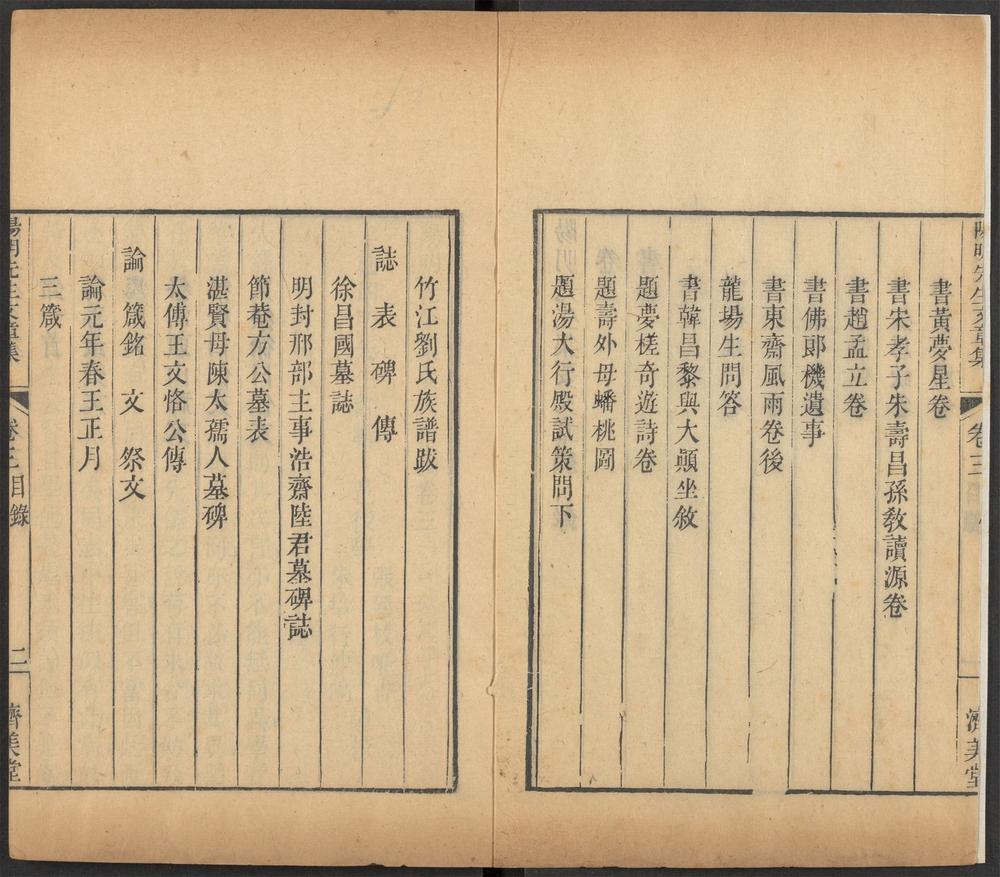 陽明先生文章集 卷三目錄 一 濟美堂
書黃夢星卷
書宋孝子朱壽昌孫敎讀源卷
書趙孟立卷
書佛郞機遺事
書東齋風雨卷後
龍場生問答
書韓昌黎與大顚坐敘
題夢槎奇遊詩卷
題壽外母蟠桃圖
題湯大行殿試策問下
竹江劉氏族譜跋
誌 表 碑 傳
徐昌國墓誌
明封邢部主事浩齋陸君墓碑誌
節菴方公墓表
湛賢母陳太孺人墓碑
太傅王文恪公傳
論 箴銘 文 祭文
論元年春王正月
三箴
陽明先生文章集 卷三目錄 二 濟美堂